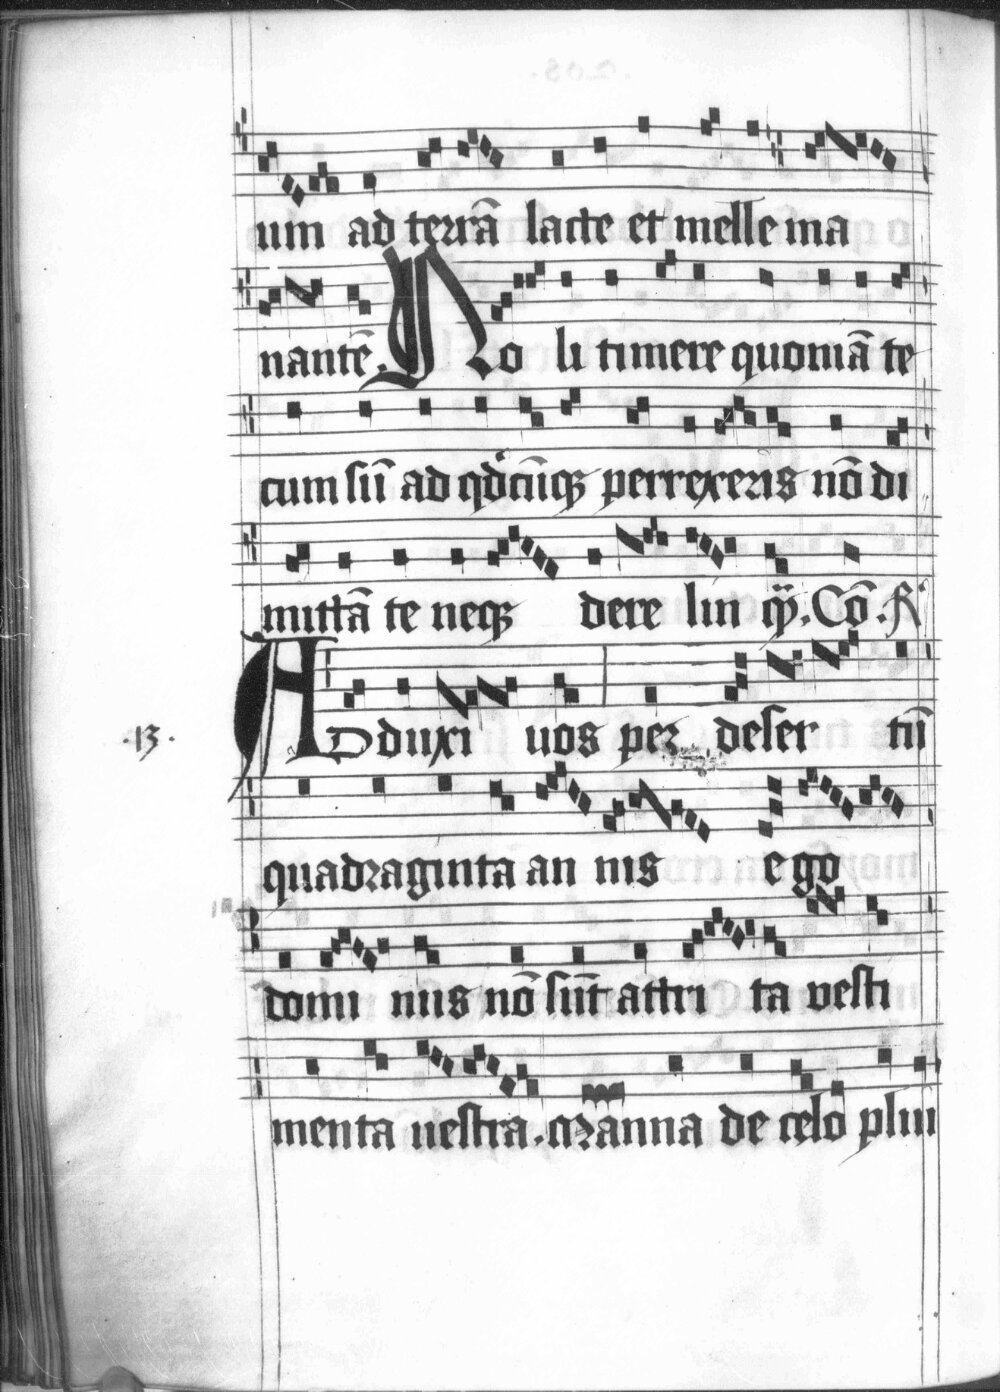 um ad terrā lacte et melle ma
nantē. No li timere quoniā te
cum sū ad qdcūq perrexeris nō di
mittā te neq dere lin qm. Cō. R
ADduxi uos per deser tū
.13.
quadraginta an nis ego
domi nus nō sūt attri ta vesti
menta uestra. manna de celo plui